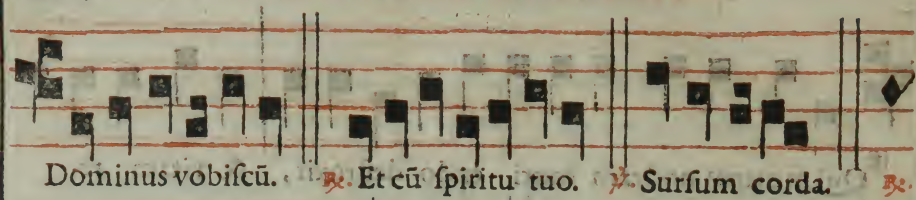 Dominus vobiſcū. ℟. Et cū ſpiritu tuo. ℣. Surſum corda. ℟.